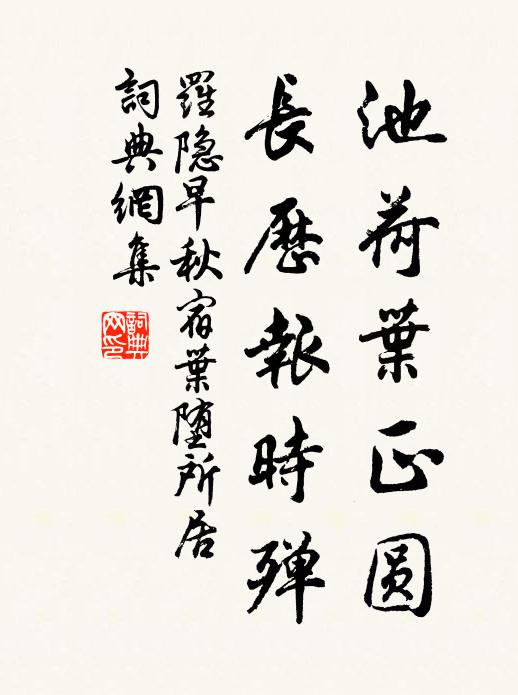 池荷葉正圓
長歷報時殫
羅隐早秋宿葉堕所居
詞典網集
詞典
网印